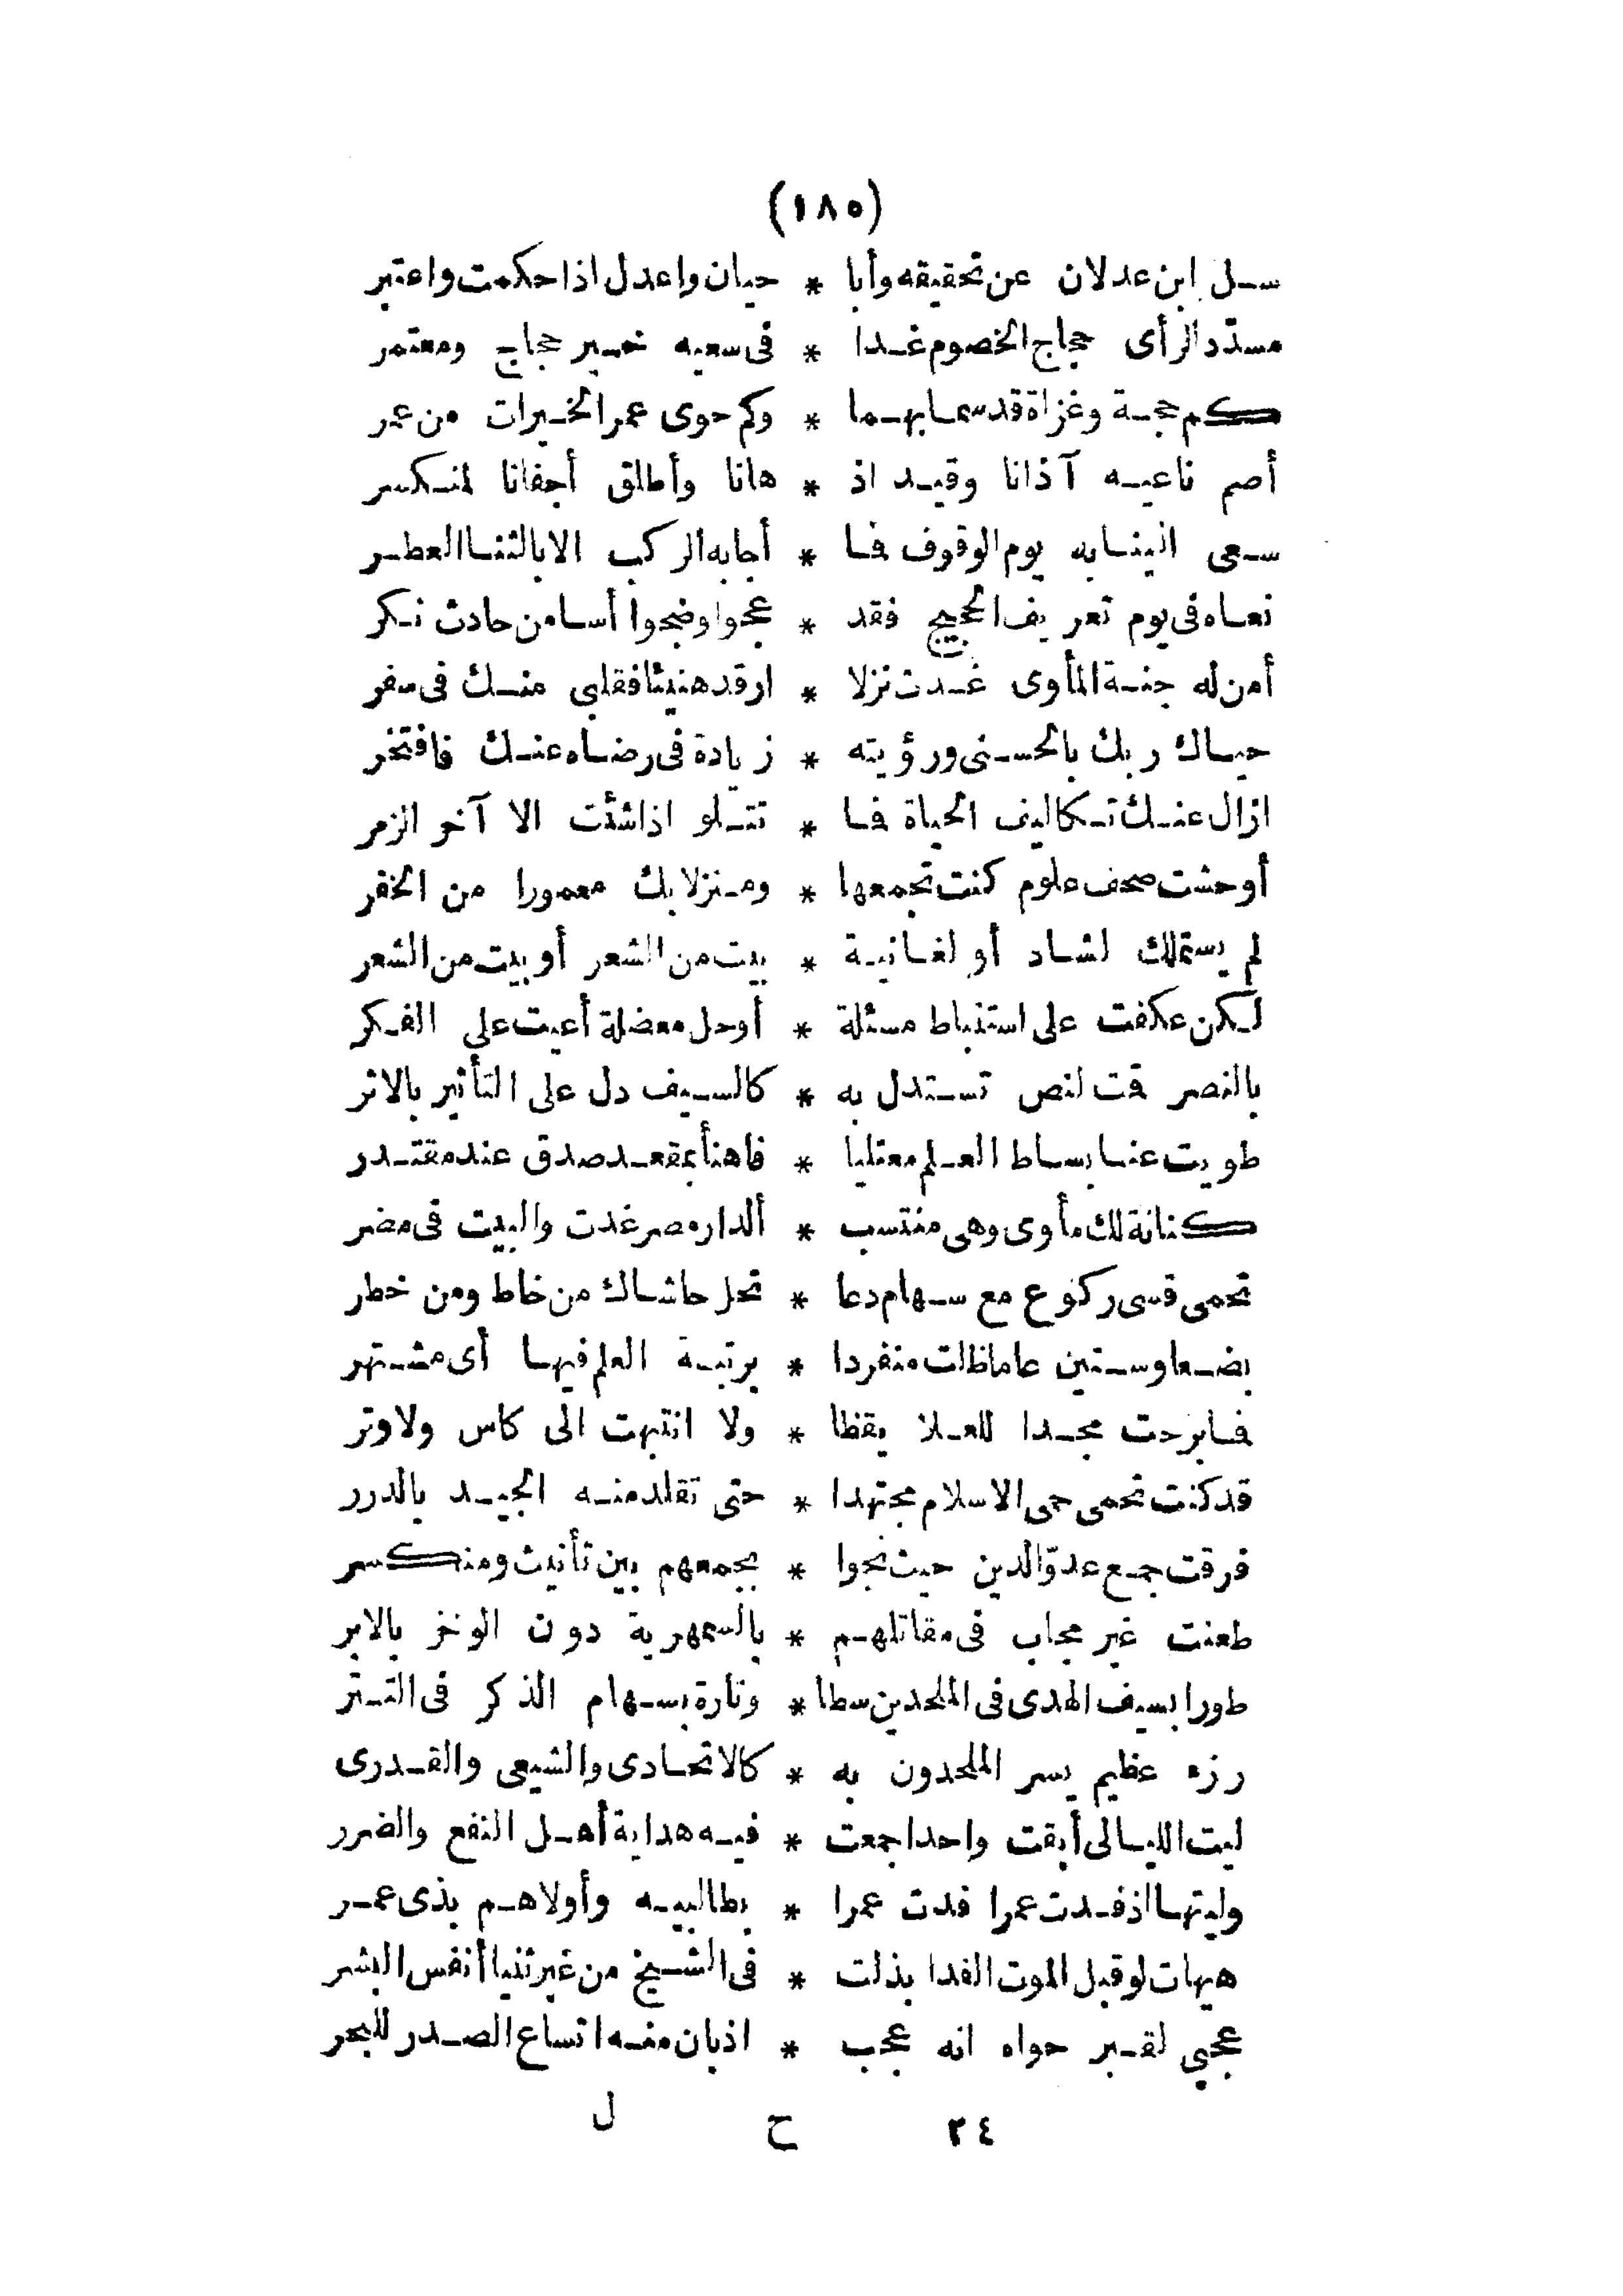 (١٨٥)
سل ابن عدلان عن تحقيقه وأبا * حيان واعدل اذا حكمت واعتبر
مسدّد الرأى حجاج الخصوم غدا * فى سعيه خير حجاج ومعتمر
كم حجة وغزاة قد سما بهما * وكم حوى عمر الخيرات من عمر
أصم ناعيه آذانا وقيد اذ * هانا وأطلق أجفانا لمنكسر
سعى الينا به يوم الوقوف فما * أجابه الركب الا بالثنا العطر
نعاه فى يوم تعريف الحجيج فقد * عجوا وضجوا أسا من حادث نكر
أمن له جنة المأوى غدت نزلا * ارقد هنيئا فقلبى منك فى سقر
حياك ربك بالحسنى ورؤيته * زيادة فى رضاه عنك فافتخر
ازال عنك تكاليف الحياة فما * تتلو اذا شئت الا آخر الزمر
أوحشت صحف علوم كنت تجمعها * ومنزلا بك معمورا من الخفر
لم يستملك لشاد أو لغانية * بيت من الشعر أو بيت من الشعر
لكن عكفت على استنباط مسئلة * أوحل معضلة أعيت على الفكر
بالنصر قمت لنص تستدل به * كالسيف دل على التأثير بالاثر
طويت عنا بساط العلم معتليا * فاهنأ بمقعد صدق عند مقتدر
كنانة لك مأوى وهى منتسب * ألدار مصر غدت والبيت فى مضر
تحمى قسى ركوع مع سهام دعا * تحل حاشاك من خاط ومن خطر
بضعا وستين عاما ظلت منفردا * برتبة العلم فيها أى مشتهر
فما برحت مجدا للعلا يقظا * ولا انتهت الى كاس ولا وتر
قد كنت تحمى حمى الاسلام مجتهدا * حتى تقلد منه الجيد بالدرر
فرقت جمع عدوّ الدين حيث نحوا * بجمعهم بين تأنيث ومنكسر
طعنت غير محاب فى مقاتلهم * بالسمهرية دون الوخز بالابر
طورا بسيف الهدى فى الملحدين سطا * وتارة بسهام الذكر فى التتر
رزء عظيم يسر الملحدون به * كالاتحادى والشيعى والقدرى
ليت الليالى أبقت واحدا جمعت * فيه هداية أهل النفع والضرر
وليتها اذ فدت عمرا فدت عمرا * بطالبيه وأولاهم بذى عمر
هيهات لو قبل الموت الفدا بذلت * فى الشيخ من غير ثنيا أنفس البشر
عجبى لقبر حواه انه عجب * اذ بان منه اتساع الصدر للبحر
٢٤ ح ل